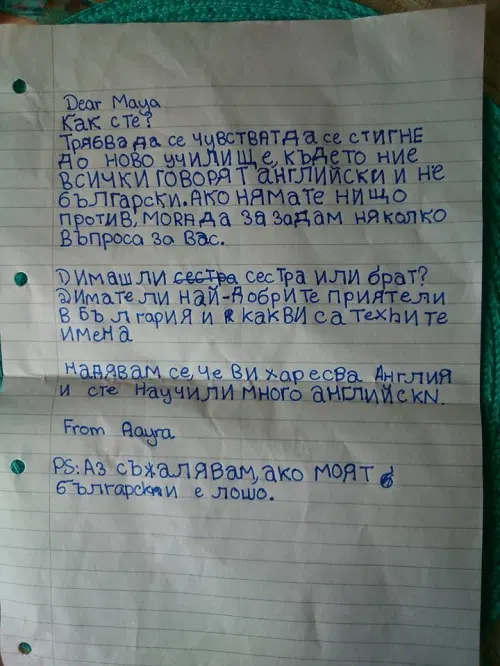 Dear Maya
Как сте?
Трябва да се чувстват да се стигне
до ново училище, където ние
всички говорят английски и не
български. Ако нямате нищо
против, мога да за задам няколко
въпроса за вас.
Димаш ли сестра сестра или брат?
Димате ли най-добрите приятели
в България и какви са техните
имена
Надявам се, че ви харесва Англия
и сте научили много английски.
From Aayra
PS: Аз съжалявам, ако моят
български е лошо.